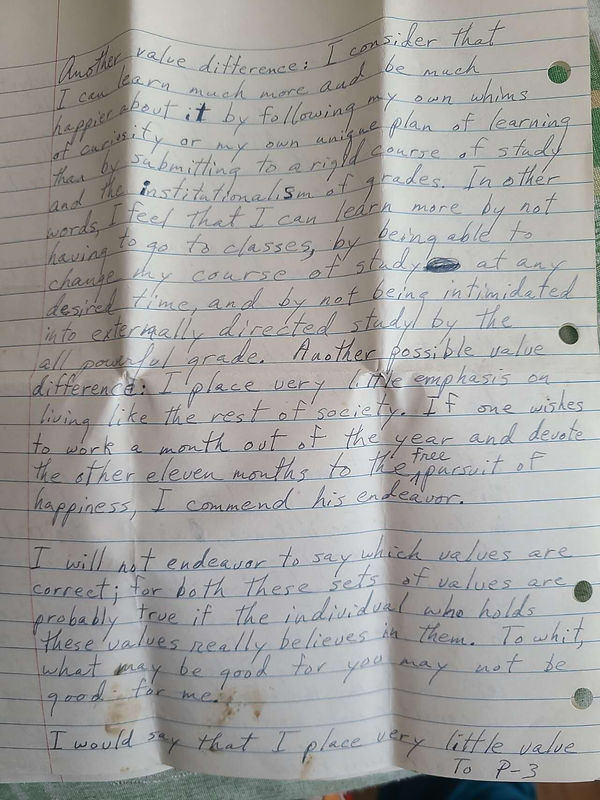 Another value difference: I consider that
I can learn much more and be much
happier about it by following my own whims
of curiosity or my own unique plan of learning
than by submitting to a rigid course of study
and the institutionalism of grades. In other
words, I feel that I can learn more by not
having to go to classes, by being able to
change my course of study at any
desired time, and by not being intimidated
into externally directed study by the
all powerful grade. Another possible value
difference: I place very little emphasis on
living like the rest of society. If one wishes
to work a month out of the year and devote
the other eleven months to the free pursuit of
happiness, I commend his endeavor.
I will not endeavor to say which values are
correct; for both these sets of values are
probably true if the individual who holds
these values really believes in them. To whit,
what may be good for you may not be
good for me.
I would say that I place very little value
To P-3